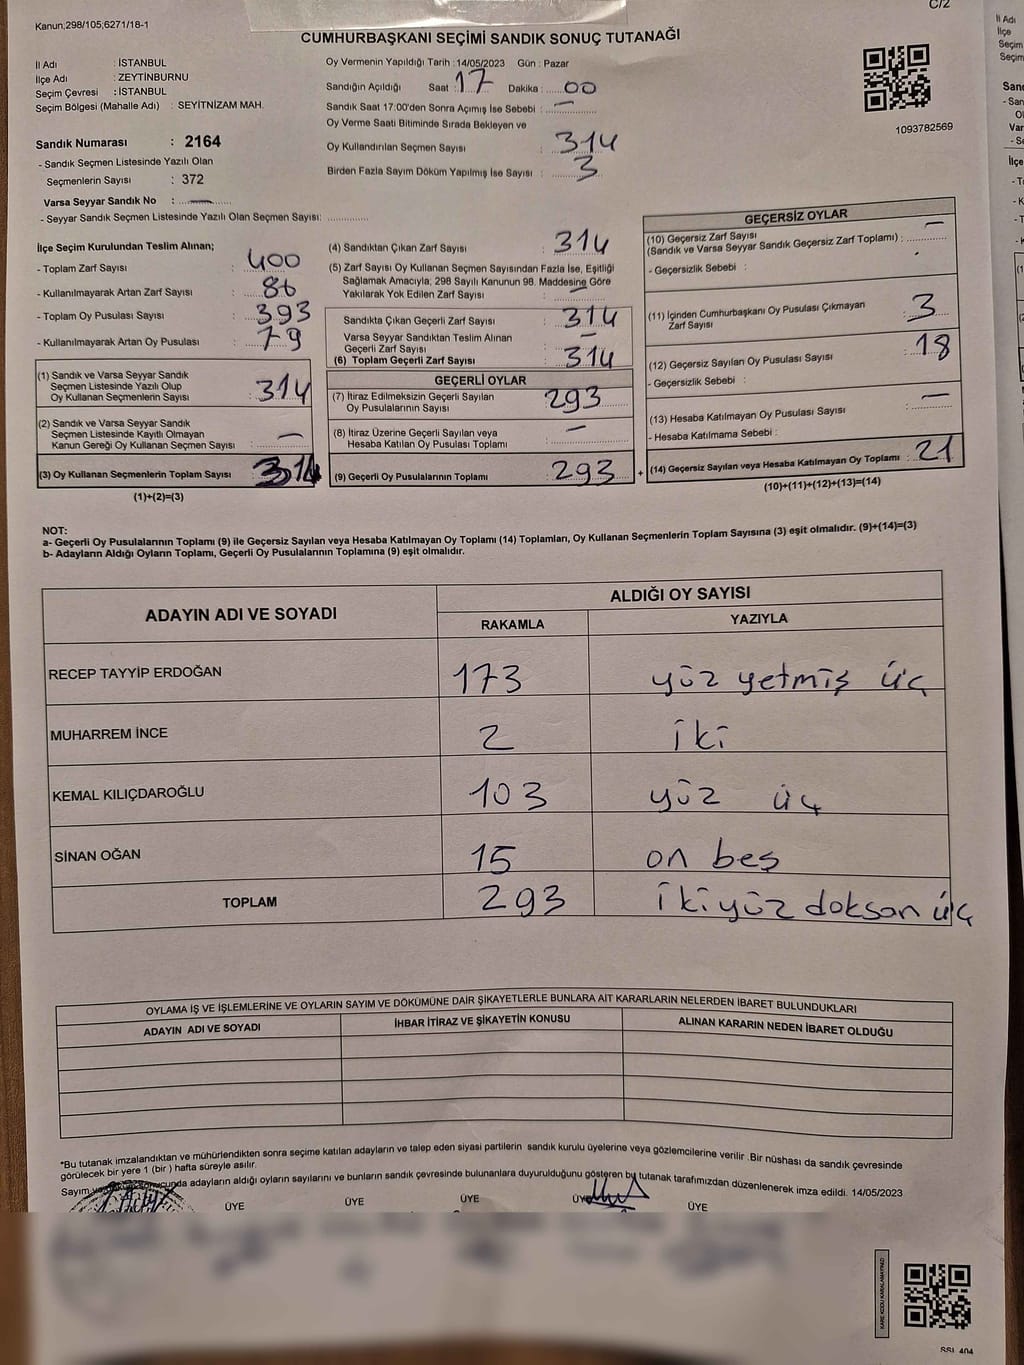 Kanun;298/105;6271/18-1
C/2
CUMHURBAŞKANI SEÇİMİ SANDIK SONUÇ TUTANAĞI
İl Adı : İSTANBUL
İlçe Adı : ZEYTİNBURNU
Seçim Çevresi : İSTANBUL
Seçim Bölgesi (Mahalle Adı) : SEYİTNİZAM MAH.
Sandık Numarası : 2164
- Sandık Seçmen Listesinde Yazılı Olan
Seçmenlerin Sayısı : 372
Varsa Seyyar Sandık No : —
- Seyyar Sandık Seçmen Listesinde Yazılı Olan Seçmen Sayısı: ..............
Oy Vermenin Yapıldığı Tarih : 14/05/2023 Gün : Pazar
Sandığın Açıldığı Saat : 17 Dakika : 00
Sandık Saat 17:00'den Sonra Açımış İse Sebebi : —
Oy Verme Saati Bitiminde Sırada Bekleyen ve
Oy Kullandırılan Seçmen Sayısı : 314
Birden Fazla Sayım Döküm Yapılmış İse Sayısı : 3
1093782569
İlçe Seçim Kurulundan Teslim Alınan;
- Toplam Zarf Sayısı : 400
- Kullanılmayarak Artan Zarf Sayısı : 86
- Toplam Oy Pusulası Sayısı : 393
- Kullanılmayarak Artan Oy Pusulası : 79
(1) Sandık ve Varsa Seyyar Sandık
Seçmen Listesinde Yazılı Olup
Oy Kullanan Seçmenlerin Sayısı : 314
(2) Sandık ve Varsa Seyyar Sandık
Seçmen Listesinde Kayıtlı Olmayan
Kanun Gereği Oy Kullanan Seçmen Sayısı : —
(3) Oy Kullanan Seçmenlerin Toplam Sayısı : 314
(1)+(2)=(3)
(4) Sandıktan Çıkan Zarf Sayısı : 314
(5) Zarf Sayısı Oy Kullanan Seçmen Sayısından Fazla İse, Eşitliği
Sağlamak Amacıyla; 298 Sayılı Kanunun 98. Maddesine Göre
Yakılarak Yok Edilen Zarf Sayısı : —
Sandıkta Çıkan Geçerli Zarf Sayısı : 314
Varsa Seyyar Sandıktan Teslim Alınan
Geçerli Zarf Sayısı : —
(6) Toplam Geçerli Zarf Sayısı : 314
GEÇERLİ OYLAR
(7) İtiraz Edilmeksizin Geçerli Sayılan
Oy Pusulalarının Sayısı : 293
(8) İtiraz Üzerine Geçerli Sayılan veya
Hesaba Katılan Oy Pusulası Toplamı : —
(9) Geçerli Oy Pusulalarının Toplamı : 293
+
GEÇERSİZ OYLAR
(10) Geçersiz Zarf Sayısı
(Sandık ve Varsa Seyyar Sandık Geçersiz Zarf Toplamı) : —
- Geçersizlik Sebebi :
(11) İçinden Cumhurbaşkanı Oy Pusulası Çıkmayan
Zarf Sayısı : 3
(12) Geçersiz Sayılan Oy Pusulası Sayısı : 18
- Geçersizlik Sebebi :
(13) Hesaba Katılmayan Oy Pusulası Sayısı : —
- Hesaba Katılmama Sebebi :
(14) Geçersiz Sayılan veya Hesaba Katılmayan Oy Toplamı : 21
(10)+(11)+(12)+(13)=(14)
NOT:
a- Geçerli Oy Pusulalarının Toplamı (9) ile Geçersiz Sayılan veya Hesaba Katılmayan Oy Toplamı (14) Toplamları, Oy Kullanan Seçmenlerin Toplam Sayısına (3) eşit olmalıdır. (9)+(14)=(3)
b- Adayların Aldığı Oyların Toplamı, Geçerli Oy Pusulalarının Toplamına (9) eşit olmalıdır.
ADAYIN ADI VE SOYADI ALDIĞI OY SAYISI
RAKAMLA YAZIYLA
RECEP TAYYİP ERDOĞAN 173 yüz yetmiş üç
MUHARREM İNCE 2 iki
KEMAL KILIÇDAROĞLU 103 yüz üç
SİNAN OĞAN 15 on beş
TOPLAM 293 ikiyüz doksan üç
OYLAMA İŞ VE İŞLEMLERİNE VE OYLARIN SAYIM VE DÖKÜMÜNE DAİR ŞİKAYETLERLE BUNLARA AİT KARARLARIN NELERDEN İBARET BULUNDUKLARI
ADAYIN ADI VE SOYADI İHBAR İTİRAZ VE ŞİKAYETİN KONUSU ALINAN KARARIN NEDEN İBARET OLDUĞU
*Bu tutanak imzalandıktan ve mühürlendikten sonra seçime katılan adayların ve talep eden siyasi partilerin sandık kurulu üyelerine veya gözlemcilerine verilir .Bir nüshası da sandık çevresinde
görülecek bir yere 1 (bir ) hafta süreyle asılır.
Sayım adayların aldığı oyların sayılarını ve bunların sandık çevresinde bulunanlara duyurulduğunu gösteren bu tutanak tarafımızdan düzenlenerek imza edildi. 14/05/2023
ÜYE ÜYE ÜYE ÜYE ÜYE
KARE KODU KARALAMAYINIZ!